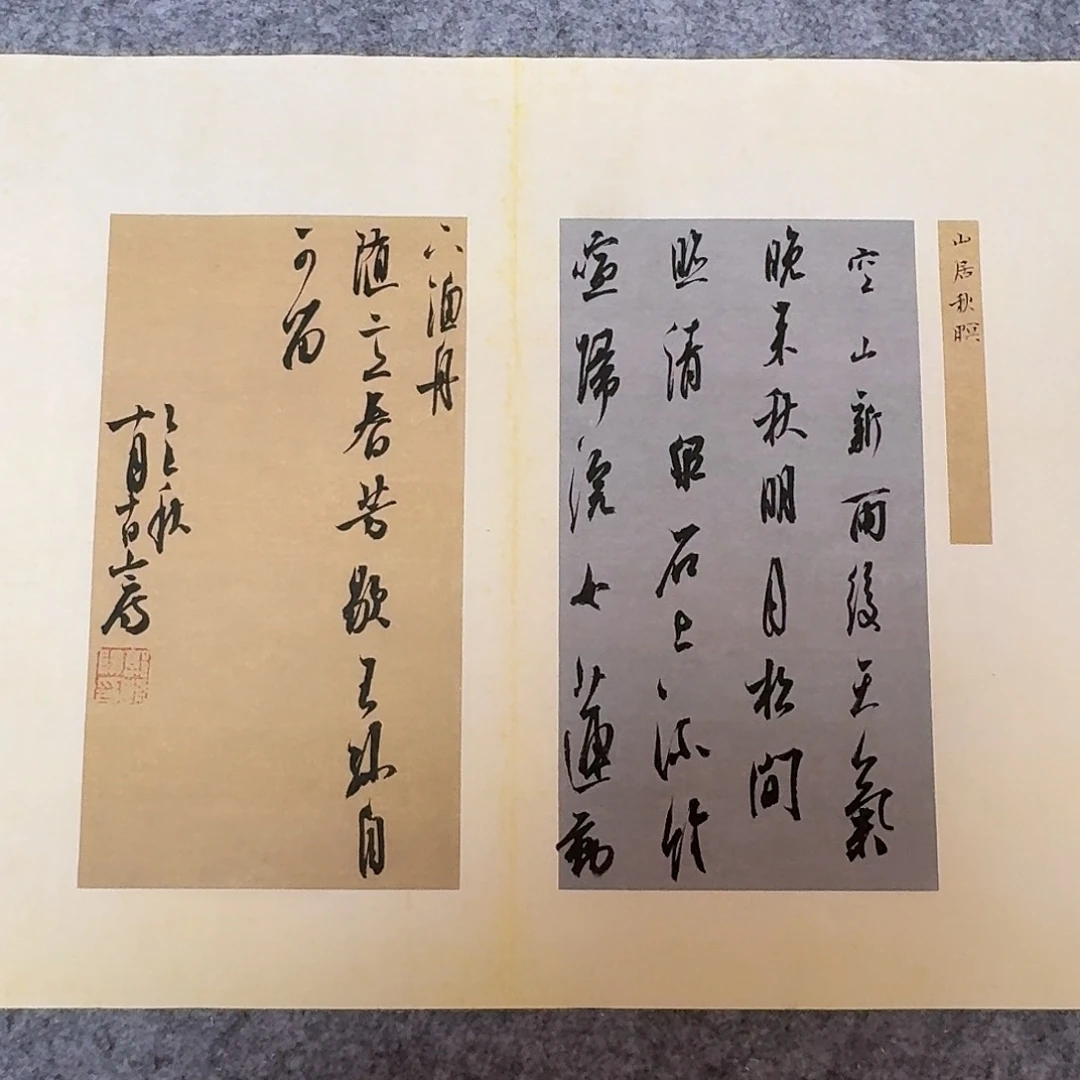 山居秋暝
空山新雨後天氣
晚来秋明月松間
照清泉石上流竹
喧歸浣女蓮動
下漁舟
随意春芳歇王孫自
可留
秋
十月